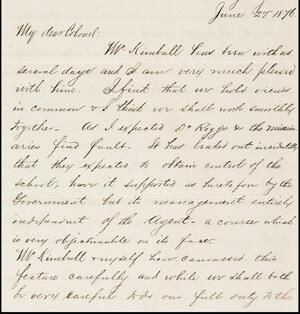 June 27 1876
My dear Colonel:
Mr Kimball has been with us
several days and I am very much pleased
with him. I find that we hold views
in common & I think we shall work smoothly
together. As I expected Dr Riggs & the mission
aries find fault. It has leaked out incidentally
that they expected to obtain control of the
school, have it supported as heretofore by the
Government but its management entirely
independent of the Agent - a course which
is very objectionable on its face.
Mr Kimball & myself have canvassed this
feature carefully and while we shall both
be very careful & do our full duty to the